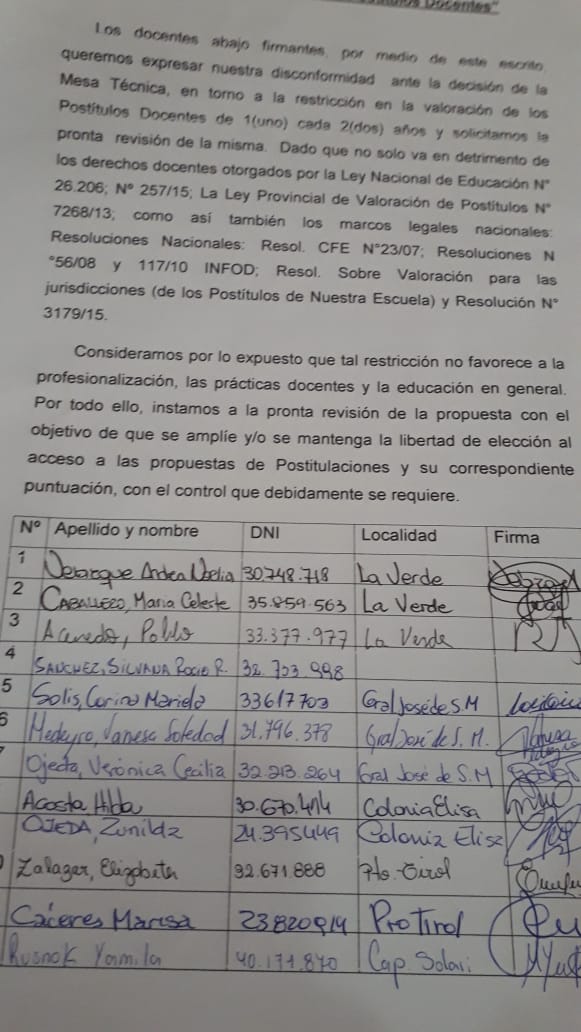 Docentes"
Los docentes abajo firmantes, por medio de este escrito
queremos expresar nuestra disconformidad ante la decisión de la
Mesa Técnica, en torno a la restricción en la valoración de los
Postítulos Docentes de 1(uno) cada 2(dos) años y solicitamos la
pronta revisión de la misma. Dado que no solo va en detrimento de
los derechos docentes otorgados por la Ley Nacional de Educación N°
26.206; Nº 257/15; La Ley Provincial de Valoración de Postítulos N°
7268/13; como así también los marcos legales nacionales:
Resoluciones Nacionales: Resol. CFE N°23/07; Resoluciones N
°56/08 y 117/10 INFOD; Resol. Sobre Valoración para las
jurisdicciones (de los Postítulos de Nuestra Escuela) y Resolución N°
3179/15.
Consideramos por lo expuesto que tal restricción no favorece a la
profesionalización, las prácticas docentes y la educación en general.
Por todo ello, instamos a la pronta revisión de la propuesta con el
objetivo de que se amplíe y/o se mantenga la libertad de elección al
acceso a las propuestas de Postitulaciones y su correspondiente
puntuación, con el control que debidamente se requiere.
Nº Apellido y nombre DNI Localidad Firma
1 Andea Noelia 30.748.718 La Verde
2 CABALLERO, Maria Celeste 35.859.563 La Verde
3 Acevedo, Pablo 33.377.977 La Verde
4 SANCHEZ, SILVANA ROCIO R. 32.703.998
5 Solis, Carina Mariela 33617703 Gral José de S.M
6 Vanesa Soledad 31.796.378 Gral José de S.M.
Ojeda, Verónica Cecilia 32.213.264 Gral José de S.M
Acosta Hilda 30.670.414 Colonia Elisa
OJEDA, Zunilda 24.395449 Colonia Elisa
Zalazar, Elizabeth 32.671.888 Pto. Tirol
Caceres Marisa 23820914 Pto Tirol
Rusnok Yamila 40.171.840 Cap. Solari